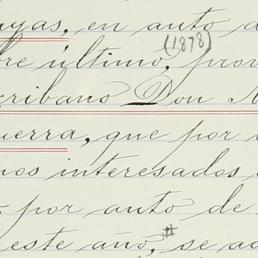 ayas, en auto d
re último, prov
(1878)
cribano Don
uerra, que por
os interesados
por auto de
este año, se a